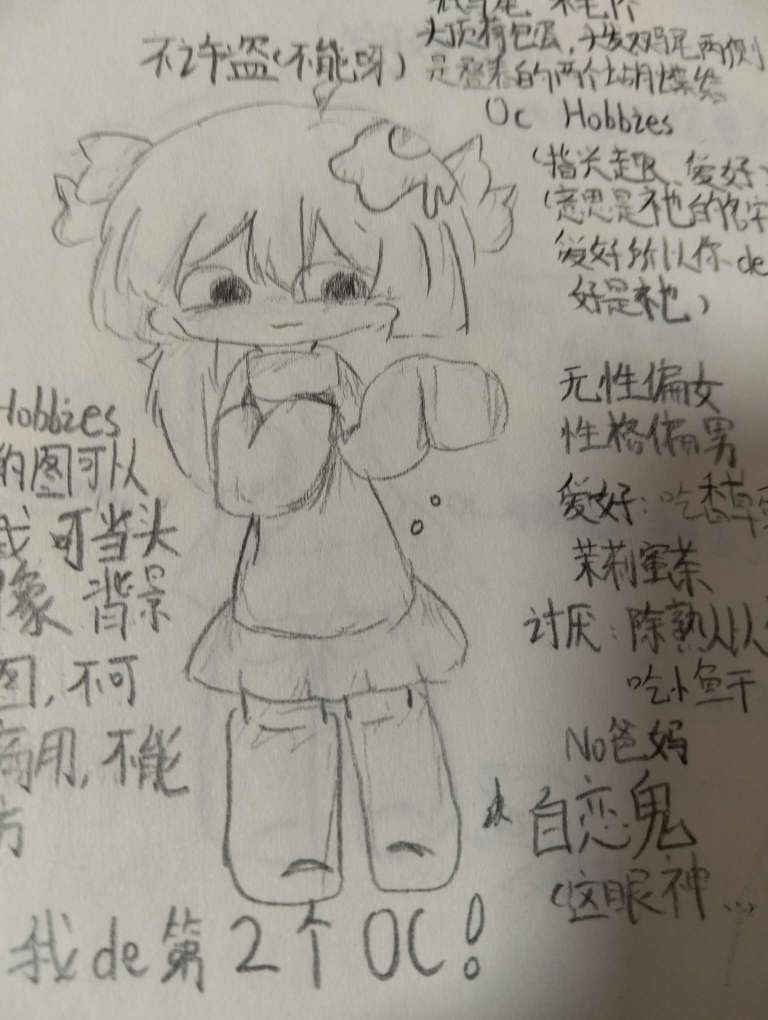 不许盗(不能呀)
头顶荷包蛋,头发双马尾两侧
是卷来的两个蝴蝶结
Oc Hobbies
(指兴趣、爱好)
(意思是祂的名字
爱好所以你de
好是祂)
无性偏女
性格偏男
爱好:吃香草
茉莉蜜茶
讨厌:除熟人以
吃小鱼干
No爸妈
自恋鬼
(这眼神...
Hobbies
的图可以
可当头
像 背景
图,不可
商用,不能
方
我de第2个OC!